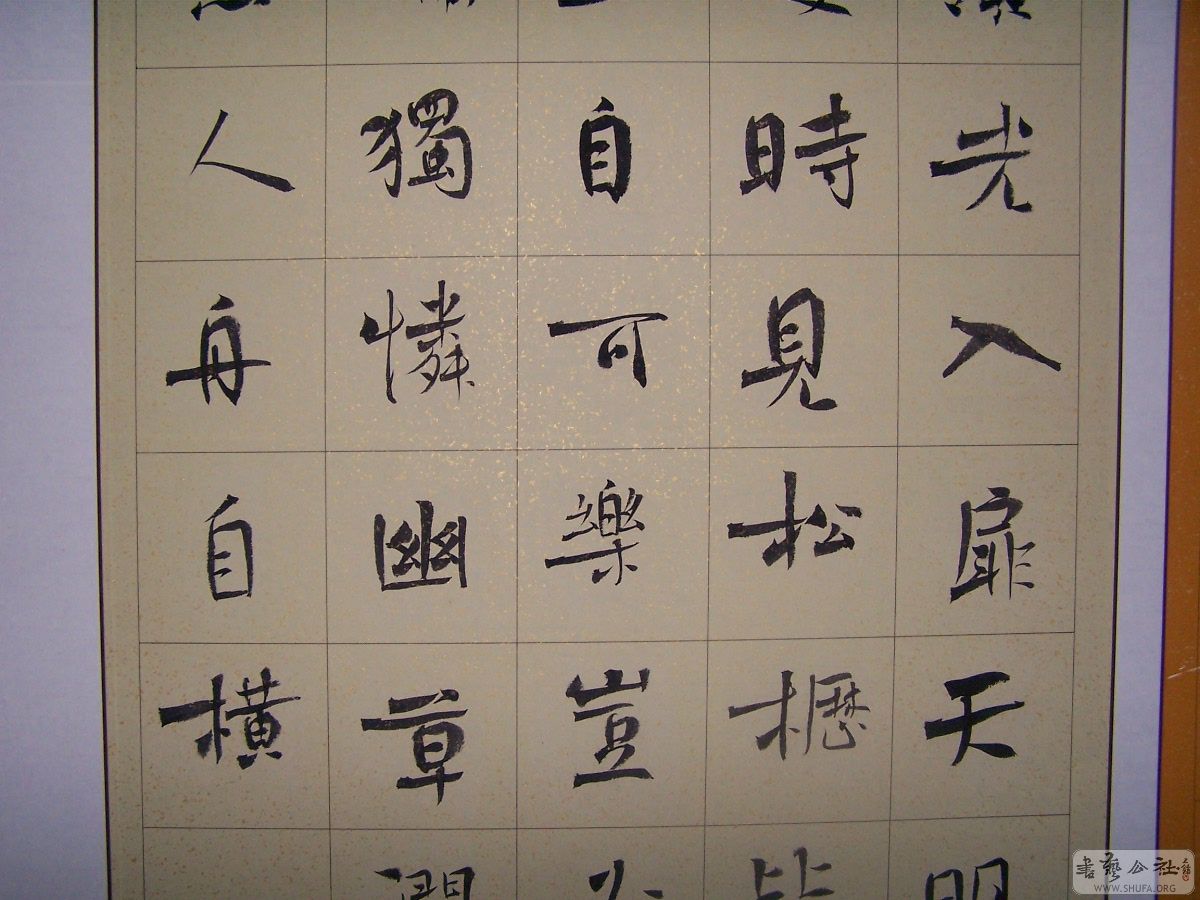 光入扉天
時見松櫪
自可樂豈
獨憐幽草
人舟自橫
書藝公社
WWW.SHUFA.ORG